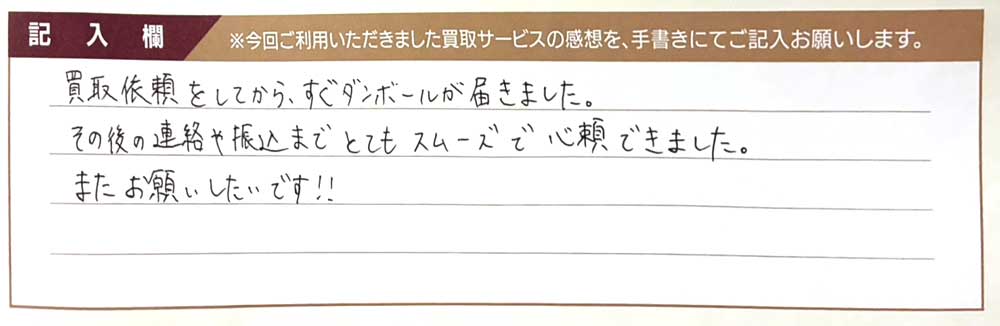 記入欄 ※今回ご利用いただきました買取サービスの感想を、手書きにてご記入お願いします。
買取依頼をしてから、すぐダンボールが届きました。
その後の連絡や振込までとてもスムーズで心頼できました。
またお願いしたいです!!